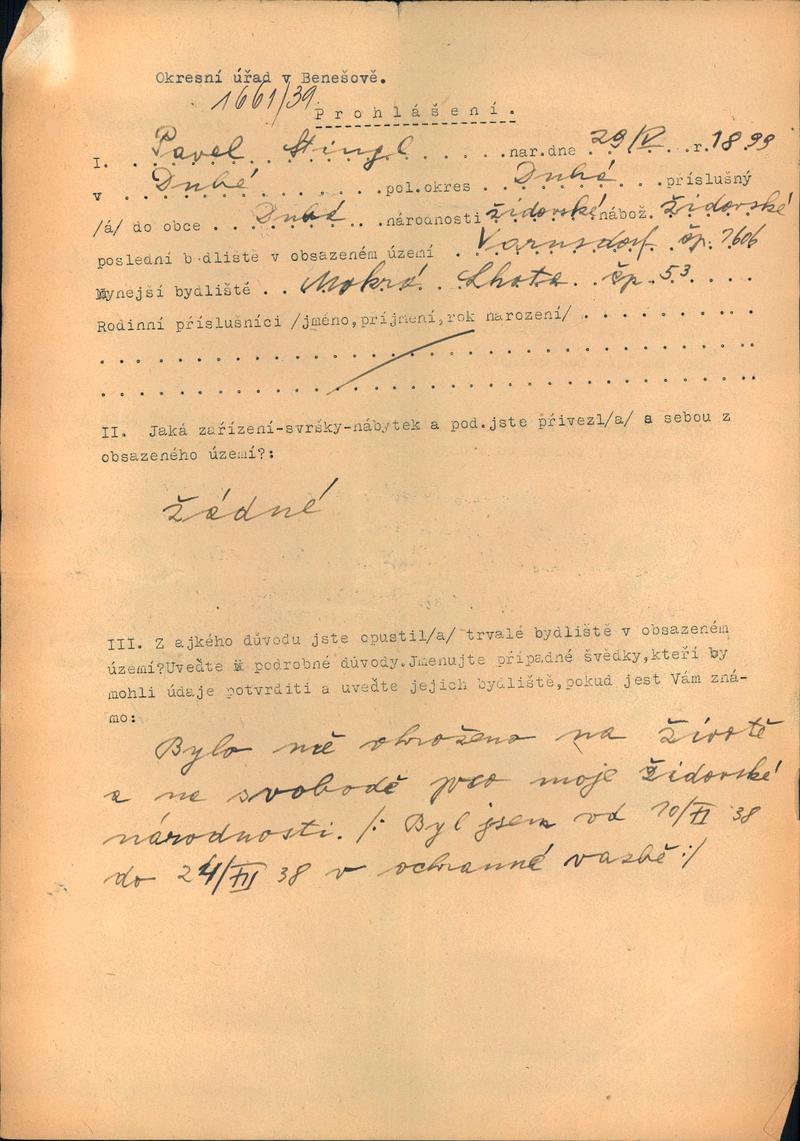 Okresní úřad v Benešově.
1661/39
Prohlášení.
I. Pavel Stingl nar.dne 29/V. r.1899
v Dubé pol.okres Dubá příslušný
/á/ do obce Dubá národnosti židovské nábož. židovské
poslední bydliště v obsazeném území . Varnsdorf čp. 1606
Nynejší bydliště . . Mokrá Lhota čp. 53
Rodinní příslušníci /jméno,příjmení,rok narození/
II. Jaká zařízení-svršky-nábytek a pod.jste přivezl/a/ s sebou z
obsazeného území?:
žádné
III. Z ajkého důvodu jste opustil/a/ trvalé bydliště v obsazeném
území?Uveďte podrobné důvody.Jmenujte případné švědky,kteří by
mohli údaje potvrditi a uveďte jejich bydliště,pokud jest Vám zná-
mo:
Bylo mě ohroženo na životě
a na svobodě pro moje židovské
národnosti. /: Byl jsem od 10/XI 38
do 24/XII 38 v ochranné vazbě :/